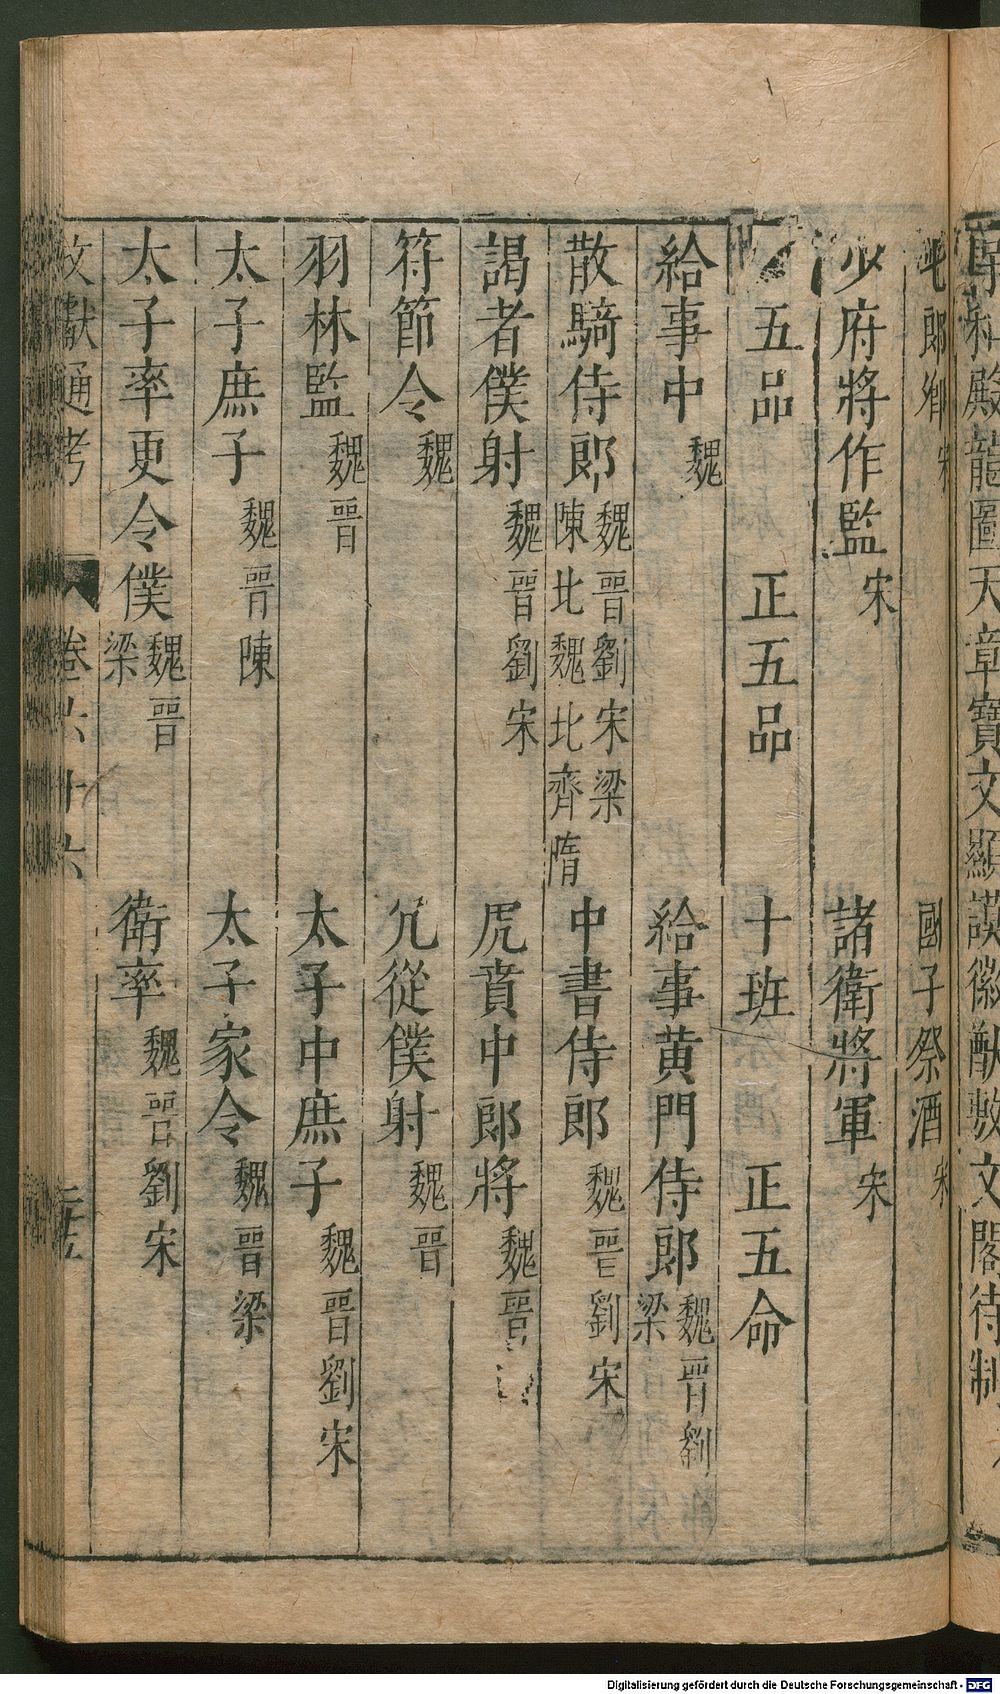 和殿龍圖天章寶文顯謨徽猷敷文閣待制
郎卿宋 國子祭酒宋
少府將作監宋 諸衛將軍宋
五品 正五品 十班 正五命
給事中魏 給事黃門侍郎魏晉劉梁
散騎侍郎魏晉劉宋梁陳北魏北齊隋 中書侍郎魏晉劉宋
謁者僕射魏晉劉宋 虎賁中郎將魏晉
符節令魏 冗從僕射魏晉
羽林監魏晉 太子中庶子魏晉劉宋
太子庶子魏晉陳 太子家令魏晉梁
太子率更令僕魏晉梁 衛率魏晉劉宋
文獻通考 卷六十六 二十五
Digitalisierung gefördert durch die Deutsche Forschungsgemeinschaft - DFG